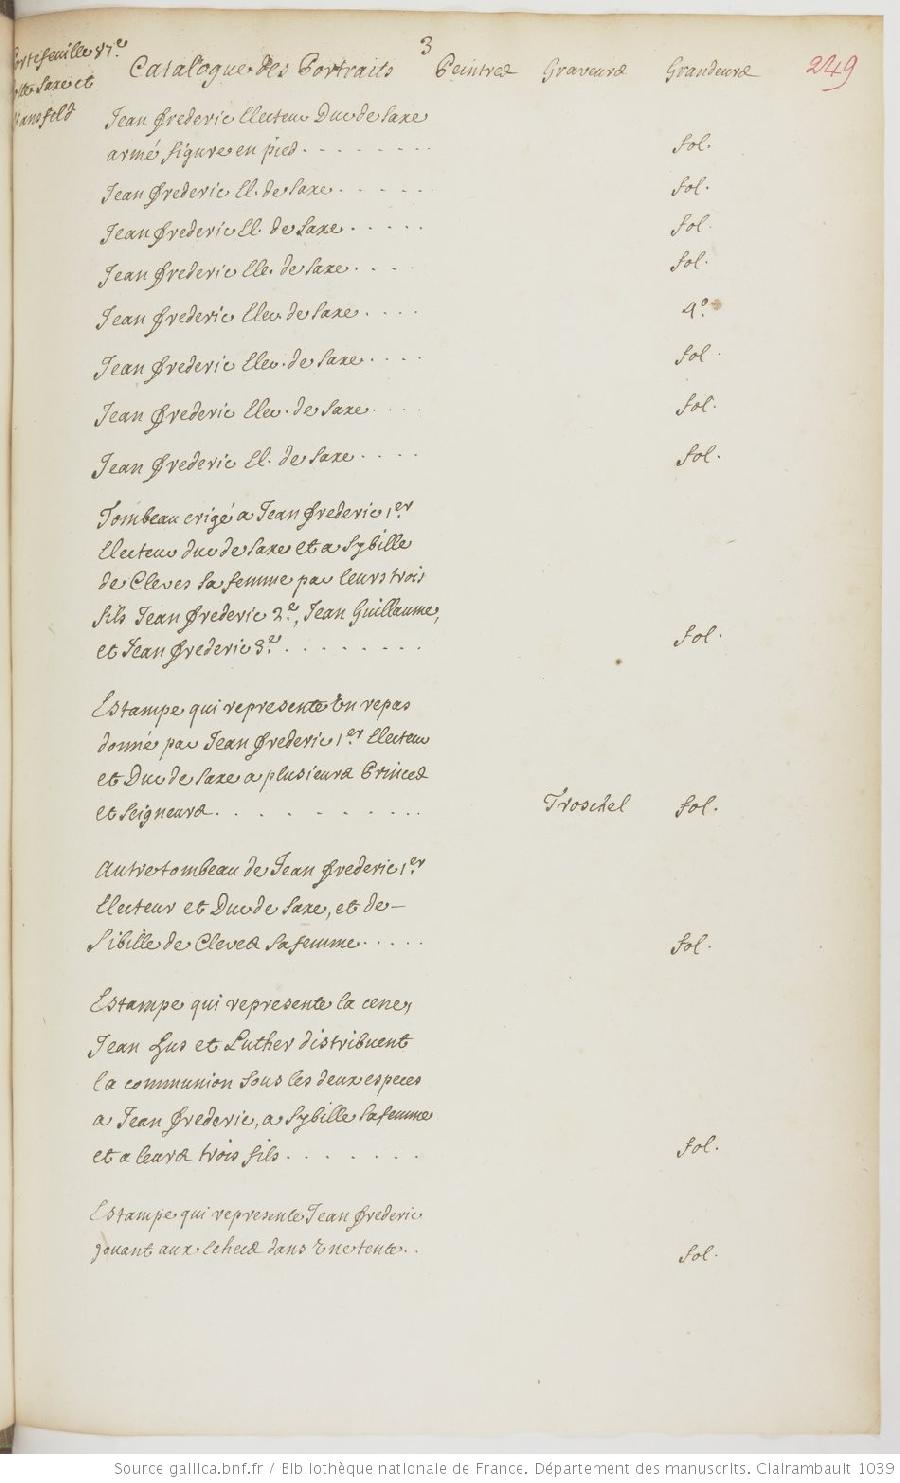 3
Portefeuille 87.e
Saxe et
Mansfeld
Catalogue des Portraits Peintres Graveurs Grandeurs 249
Jean frederic Electeur Duc de Saxe
armé figure en pied . . . . . . . . fol.
Jean frederic El. de Saxe . . . . . fol.
Jean frederic El. de Saxe . . . . . fol.
Jean frederic Ele. de Saxe . . . . fol.
Jean frederic Elec. de Saxe . . . . 4.o
Jean frederic Elec. de Saxe . . . . fol.
Jean frederic Elec. de Saxe . . . . fol.
Jean frederic El. de Saxe . . . . fol.
Tombeau erigé a Jean frederic 1.er
Electeur duc de Saxe et a Sybille
de Cleves sa femme par leurs trois
fils Jean frederic 2.e, Jean Guillaume,
et Jean frederic 3.e . . . . . . . fol.
Estampe qui represente Un repas
donné par Jean frederic 1.er Electeur
et Duc de Saxe a plusieurs Princes
et Seigneurs . . . . . . . . . . Troschel fol.
Autre tombeau de Jean frederic 1.er
Electeur et Duc de Saxe, et de –
Sibille de Cleves sa femme . . . . . fol.
Estampe qui represente la cene,
Jean Hus et Luther distribuent
la communion sous les deux especes
a Jean frederic, a Sybille sa femme
et a leurs trois fils . . . . . . . fol.
Estampe qui represente Jean frederic
jouant aux Echecs dans Une tente . . fol.
Source gallica.bnf.fr / Bibliothèque nationale de France. Département des manuscrits. Clairambault 1039